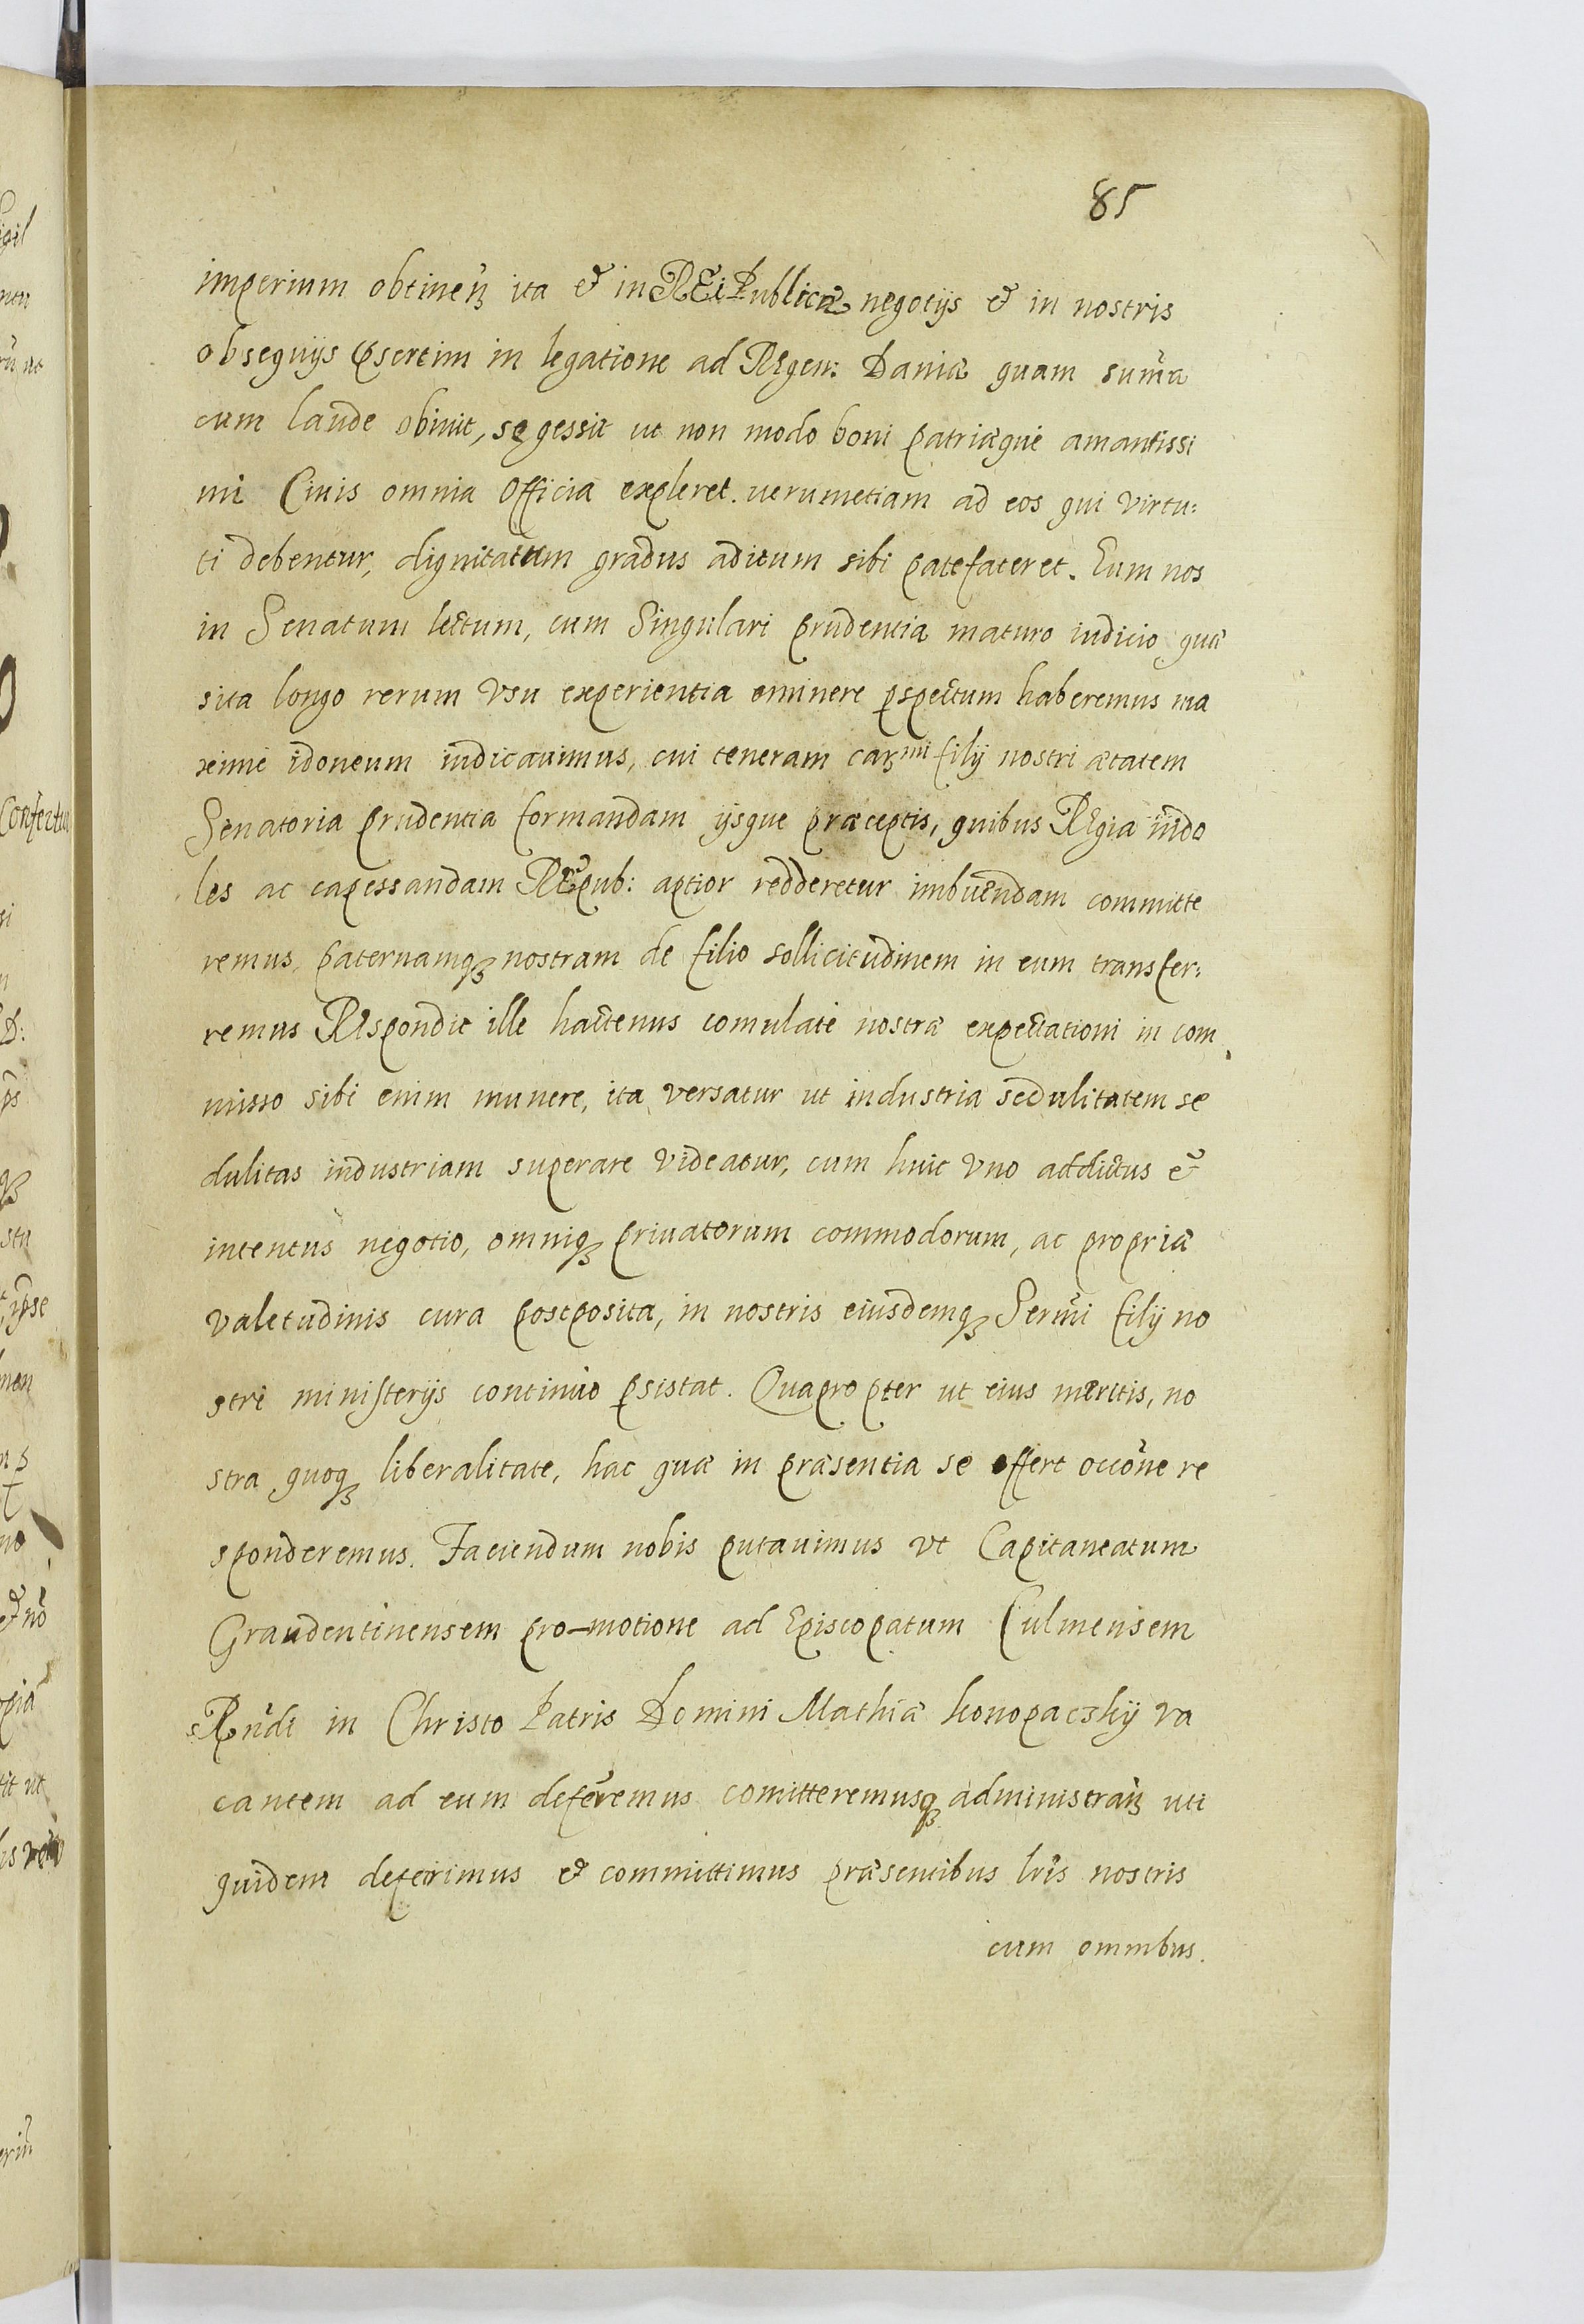 85
imperium obtineń ita & in REi Publicæ negotijs & in nostris
obsequijs psertim in legatione ad REgem: Daniæ quam sum̃a
cum laude obiuit, se gessit ut non modo boni patriæque amantissi
mi Ciuis omnia Officia expleret. uerumetiam ad eos qui virtu:
ti debentur, dignitatum gradus aditum sibi patefaceret. Eum nos
in Senatum lectum, cum Singulari prudentia maturo iudicio quæ
sita longo rerum vsu experientia eminere pspectum haberemus ma
xime idoneum iudicauimus, cui teneram carmi filij nostri ætatem
Senatoria prudentia formandam ijsque præceptis, quibus REgia indo
les ac capessandam REpub: aptior redderetur imbuendam committe
remus, paternamq3 nostram de filio sollicitudinem in eum transfer:
remus REspondit ille hactenus comulate nostræ expectationi in com
misso sibi enim munere, ita versatur ut industria sedulitatem se
dulitas industriam superare videatur, cum huic vno addictus &
intentus negotio, omniq3 priuatorum commodorum, ac propriæ
valetudinis cura postposita, in nostris eiusdemq3 Serm̃i filij no
stri ministerijs continuo psistat. Quapropter ut eius meritis, no
stra quoq3 liberalitate, hac quæ in præsentia se offert occõne re
sponderemus. Faciendum nobis putauimus vt Capitaneatum
Graudentinensem pro-motione ad Episcopatum Culmensem
Rñdi in Christo Patris Domini Mathiæ konopaczkij va
cantem ad eum deferremus comitteremusq3 administrań uti
quidem deferimus & committimus præsentibus lr̃is nostris
cum omnibus.